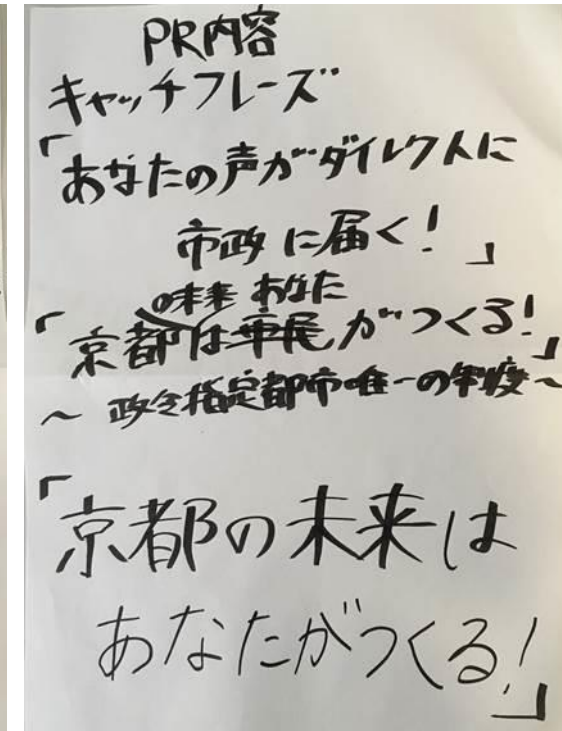 PR内容
キャッチフレーズ
「あなたの声がダイレクトに
市政に届く!」
の未来 あなた
「京都は市民がつくる!」
~政令指定都市唯一の制度~
「京都の未来は
あなたがつくる!」